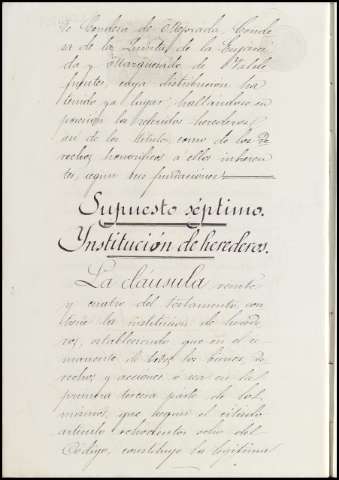 de Condesa de Mejorada, Conde
sa de la Quinta de la Enjarada
da y Marquesado de Valde
fuentes, cuya distribución ha
tenido ya lugar, hallándose en
posesión los referidos herederos,
así de los títulos como de los de
rechos honoríficos a ellos inheren
tes, según sus fundaciones.
Supuesto séptimo.
Institución de herederos.
La cláusula veinte
y cuatro del testamento, con
tiene la institución de herede
ros, estableciendo que en el re
manente de todos los bienes, de
rechos y acciones o sea en la
primera tercera parte de los
mismos, que según el citado
artículo ochocientos ocho del
Código, constituye la legítima